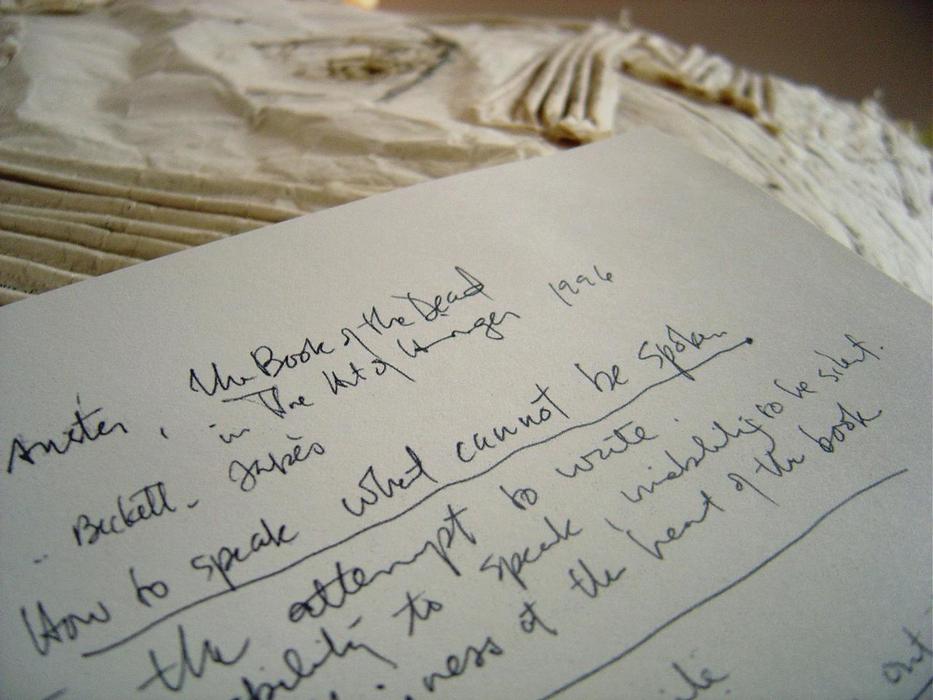 Auster, The Book of the Dead
in The Art of Hunger 1996
.. Beckett - Jabès
How to speak what cannot be spoken.
- the attempt to write.
ability to speak / inability to be silent.
iness at the heart of the book
out